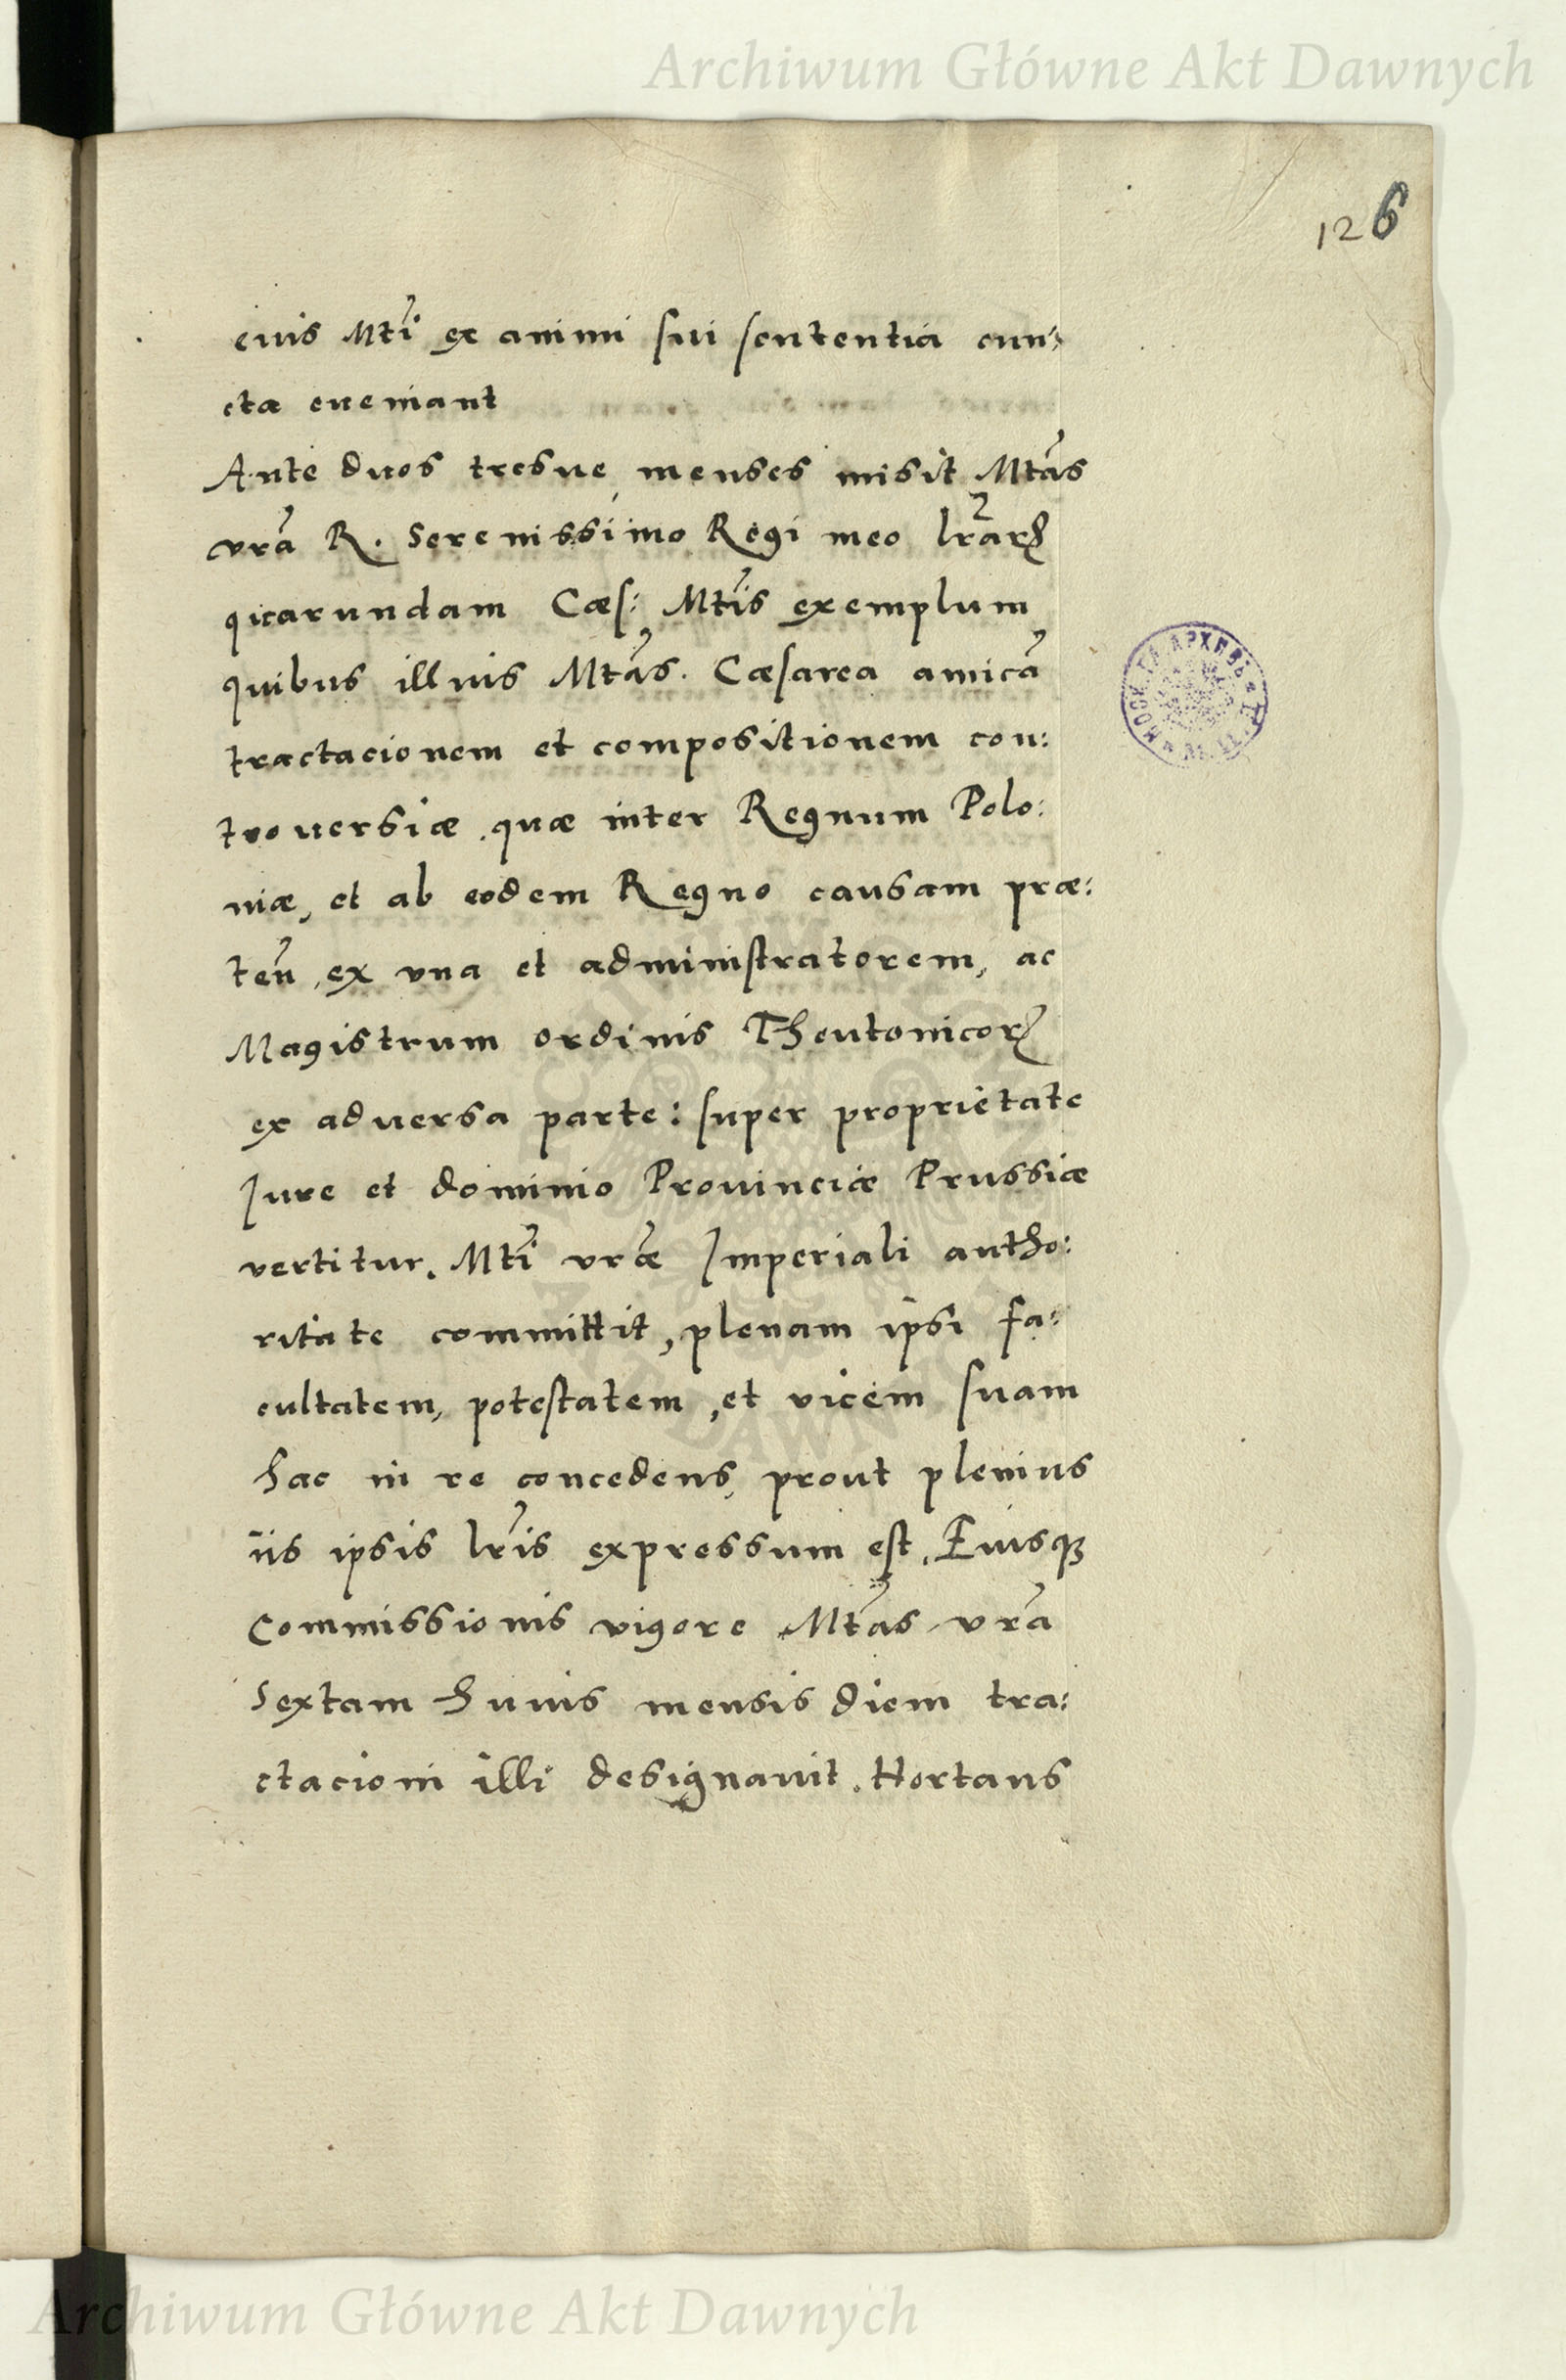 Archiwum Główne Akt Dawnych
126
euis Mti ex animi sui sententia cun:
cta eueniant
Ante duos tresue menses misit Mtas
vra R. Serenissimo Regi meo lrarꝝ
quarundam Cæs: Mtis exemplum
quibus illius Mtas. Cæsarea amicã
tractacionem et compositionem con:
trouersiæ quæ inter Regnum Polo:
niæ, et ab eodem Regno causam præ:
ten, ex vna et administratorem, ac
Magistrum ordinis Theutonicorꝝ
ex aduersa parte: super proprietate
Jure et dominio Prouinciæ Prussiæ
vertitur. Mti vræ Imperiali autho:
ritate committit, plenam ipsi fa:
cultatem, potestatem, et vicem suam
hac in re concedens, prout plenius
iis ipsis lris expressum est. Eiusqꝫ
Commissionis vigore Mtas vra
Sextam huius mensis diem tra:
ctacioni illi designauit. Hortans
Archiwum Główne Akt Dawnych